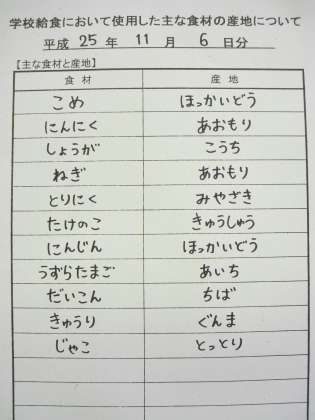 学校給食において使用した主な食材の産地について
平成 25 年 11 月 6 日分
【主な食材と産地】
食材 産地
こめ ほっかいどう
にんにく あおもり
しょうが こうち
ねぎ あおもり
とりにく みやざき
たけのこ きゅうしゅう
にんじん ほっかいどう
うずらたまご あいち
だいこん ちば
きゅうり ぐんま
じゃこ とっとり